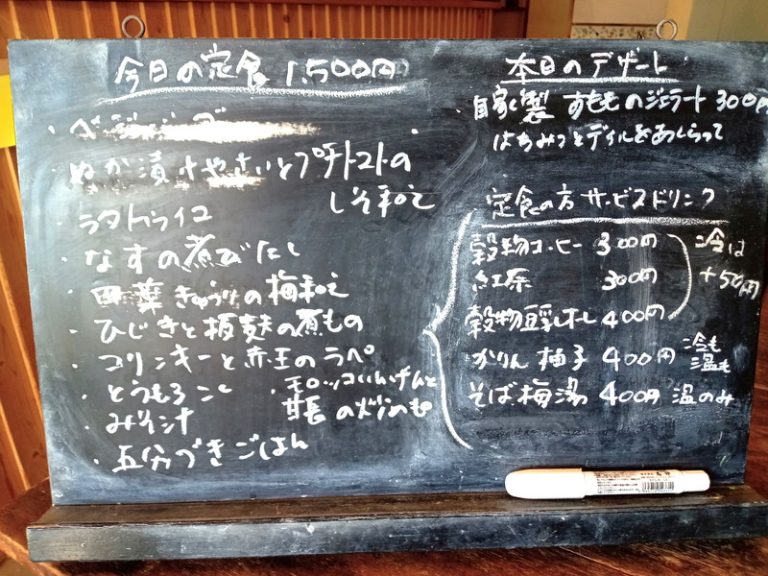 今日の定食 1,500円
・ぬか漬けやさいとプチトマトの
しそ和え
・ラタトゥイユ
・なすの煮びたし
・四葉きゅうりの梅和え
・ひじきと板麩の煮もの
・コリンキーと赤玉のラペ
・とうもろこし
・モロッコいんげんと
甘長の炒めもの
・みそ汁
・五分づきごはん
本日のデザート
自家製 すもものジェラート 300円
はちみつとディルをあしらって
定食の方 サービスドリンク
穀物コーヒー 300円
紅茶 300円
冷は
+50円
穀物豆乳オレ 400円
かりん 柚子 400円 冷も
温も
そば梅湯 400円 温のみ